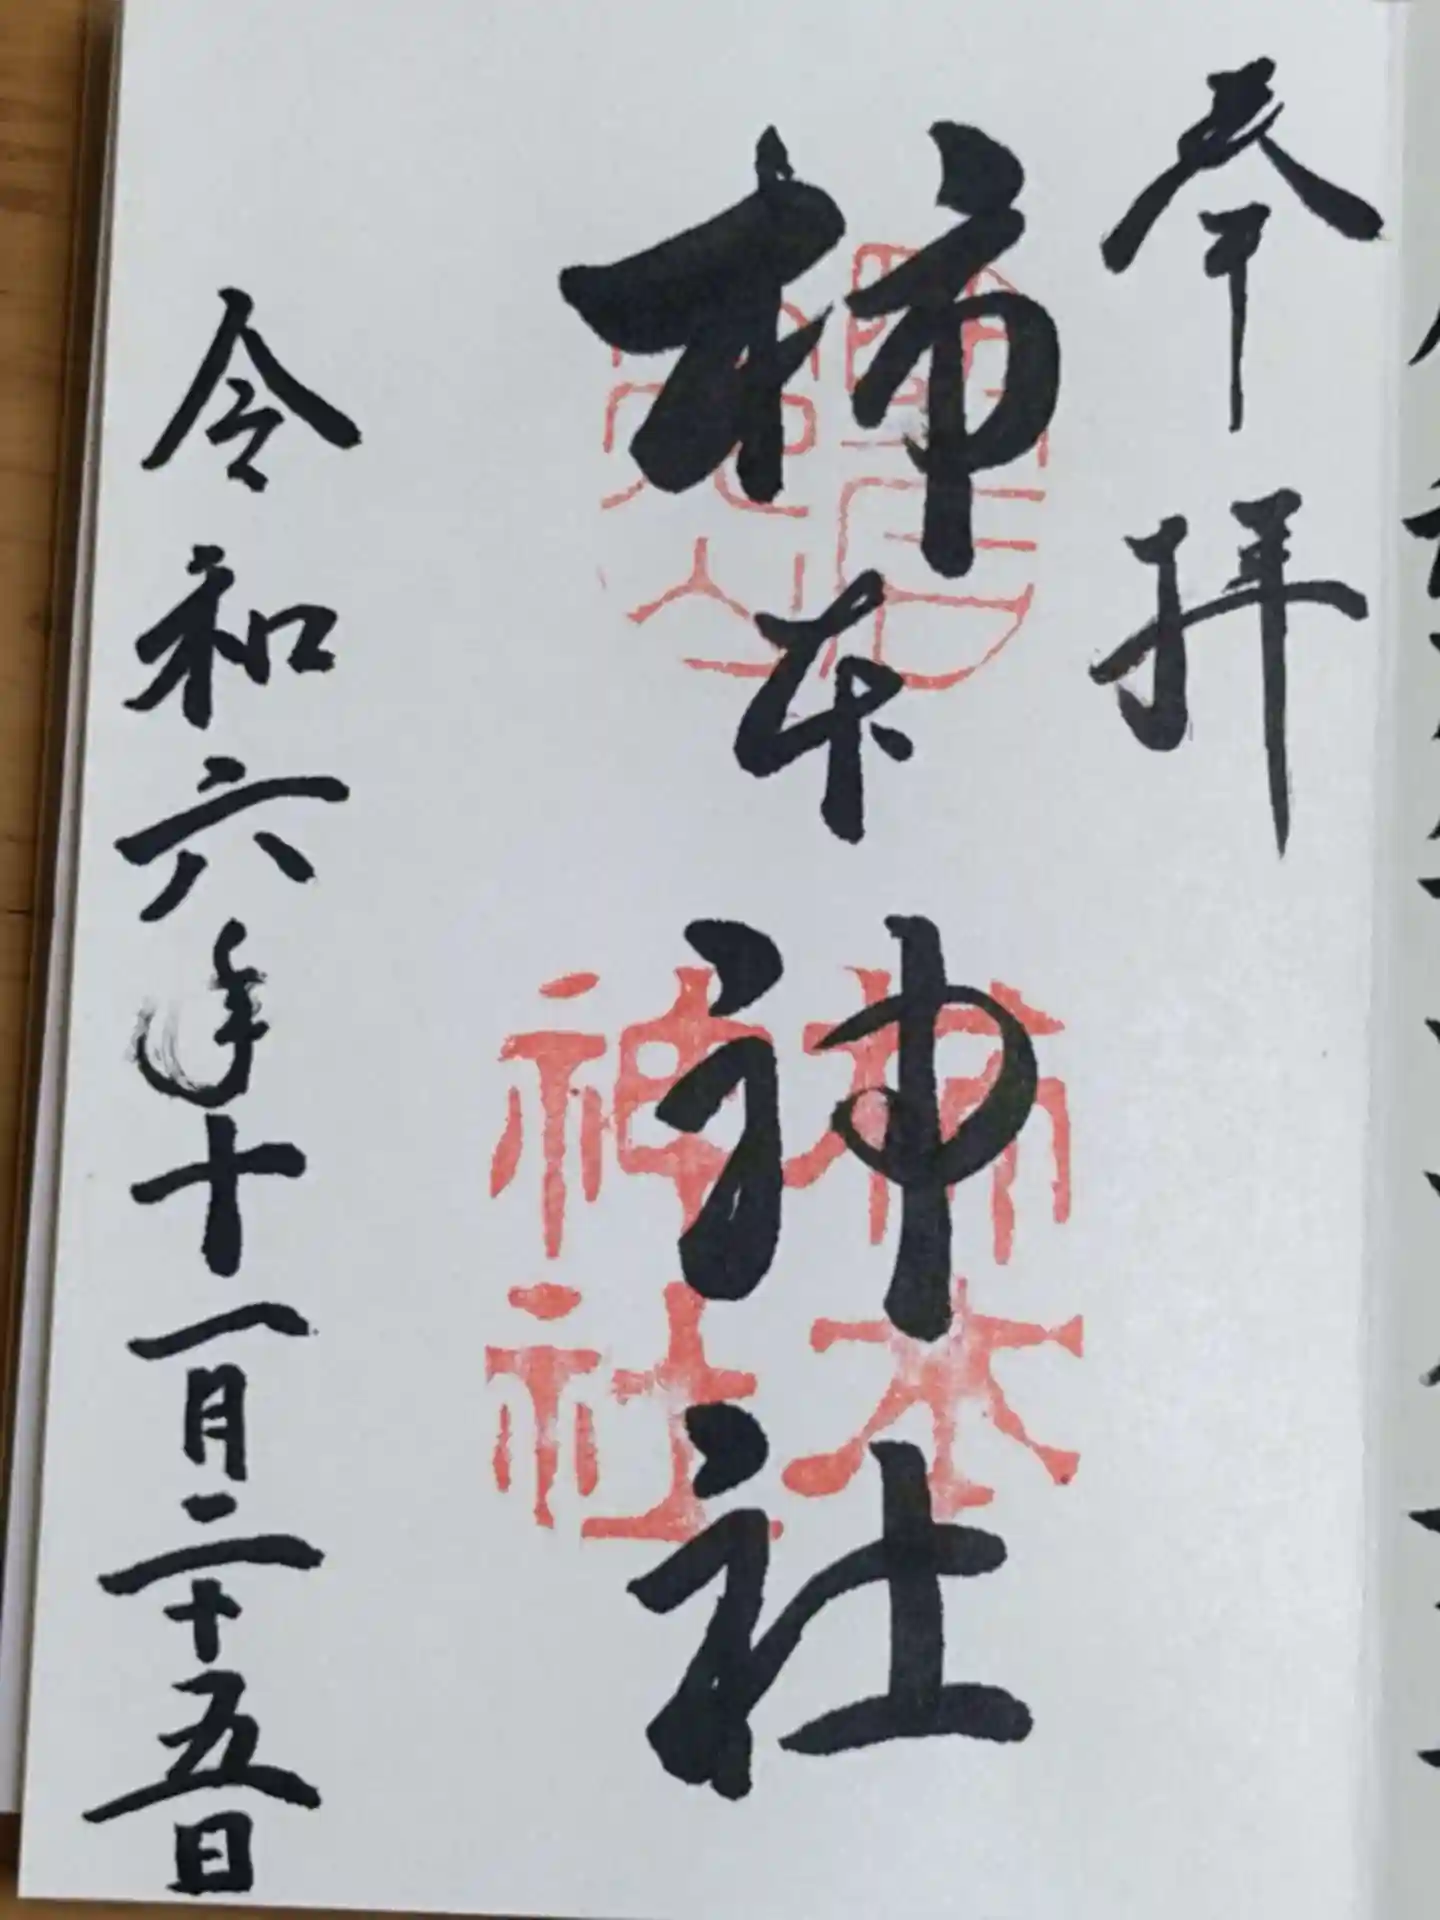 奉拝
柿本神社
柿本神社
令和六年十一月二十五日